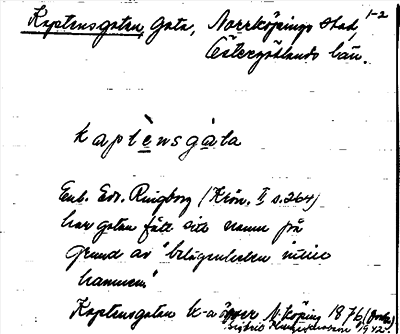 Kaptensgatan, Gata, Norrköpings stad, 1-2
Östergötlands län.
kaptènsgàta
Enl. Edv. Ringborg (Krön. II s. 264)
har gatan fått sitt namn på
grund av "belägenheten invid
hamnen"
Kaptensgatan k-a över N-köping 1876
1942.